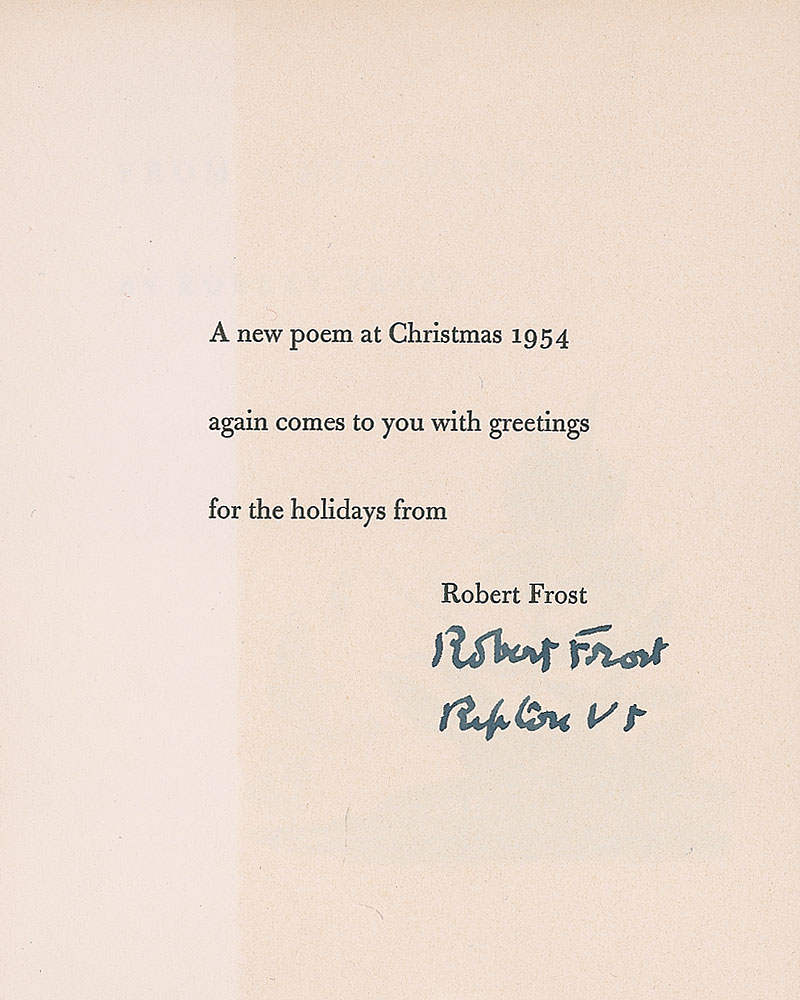 A new poem at Christmas 1954
again comes to you with greetings
for the holidays from
Robert Frost
Robert Frost
Ripton Vt